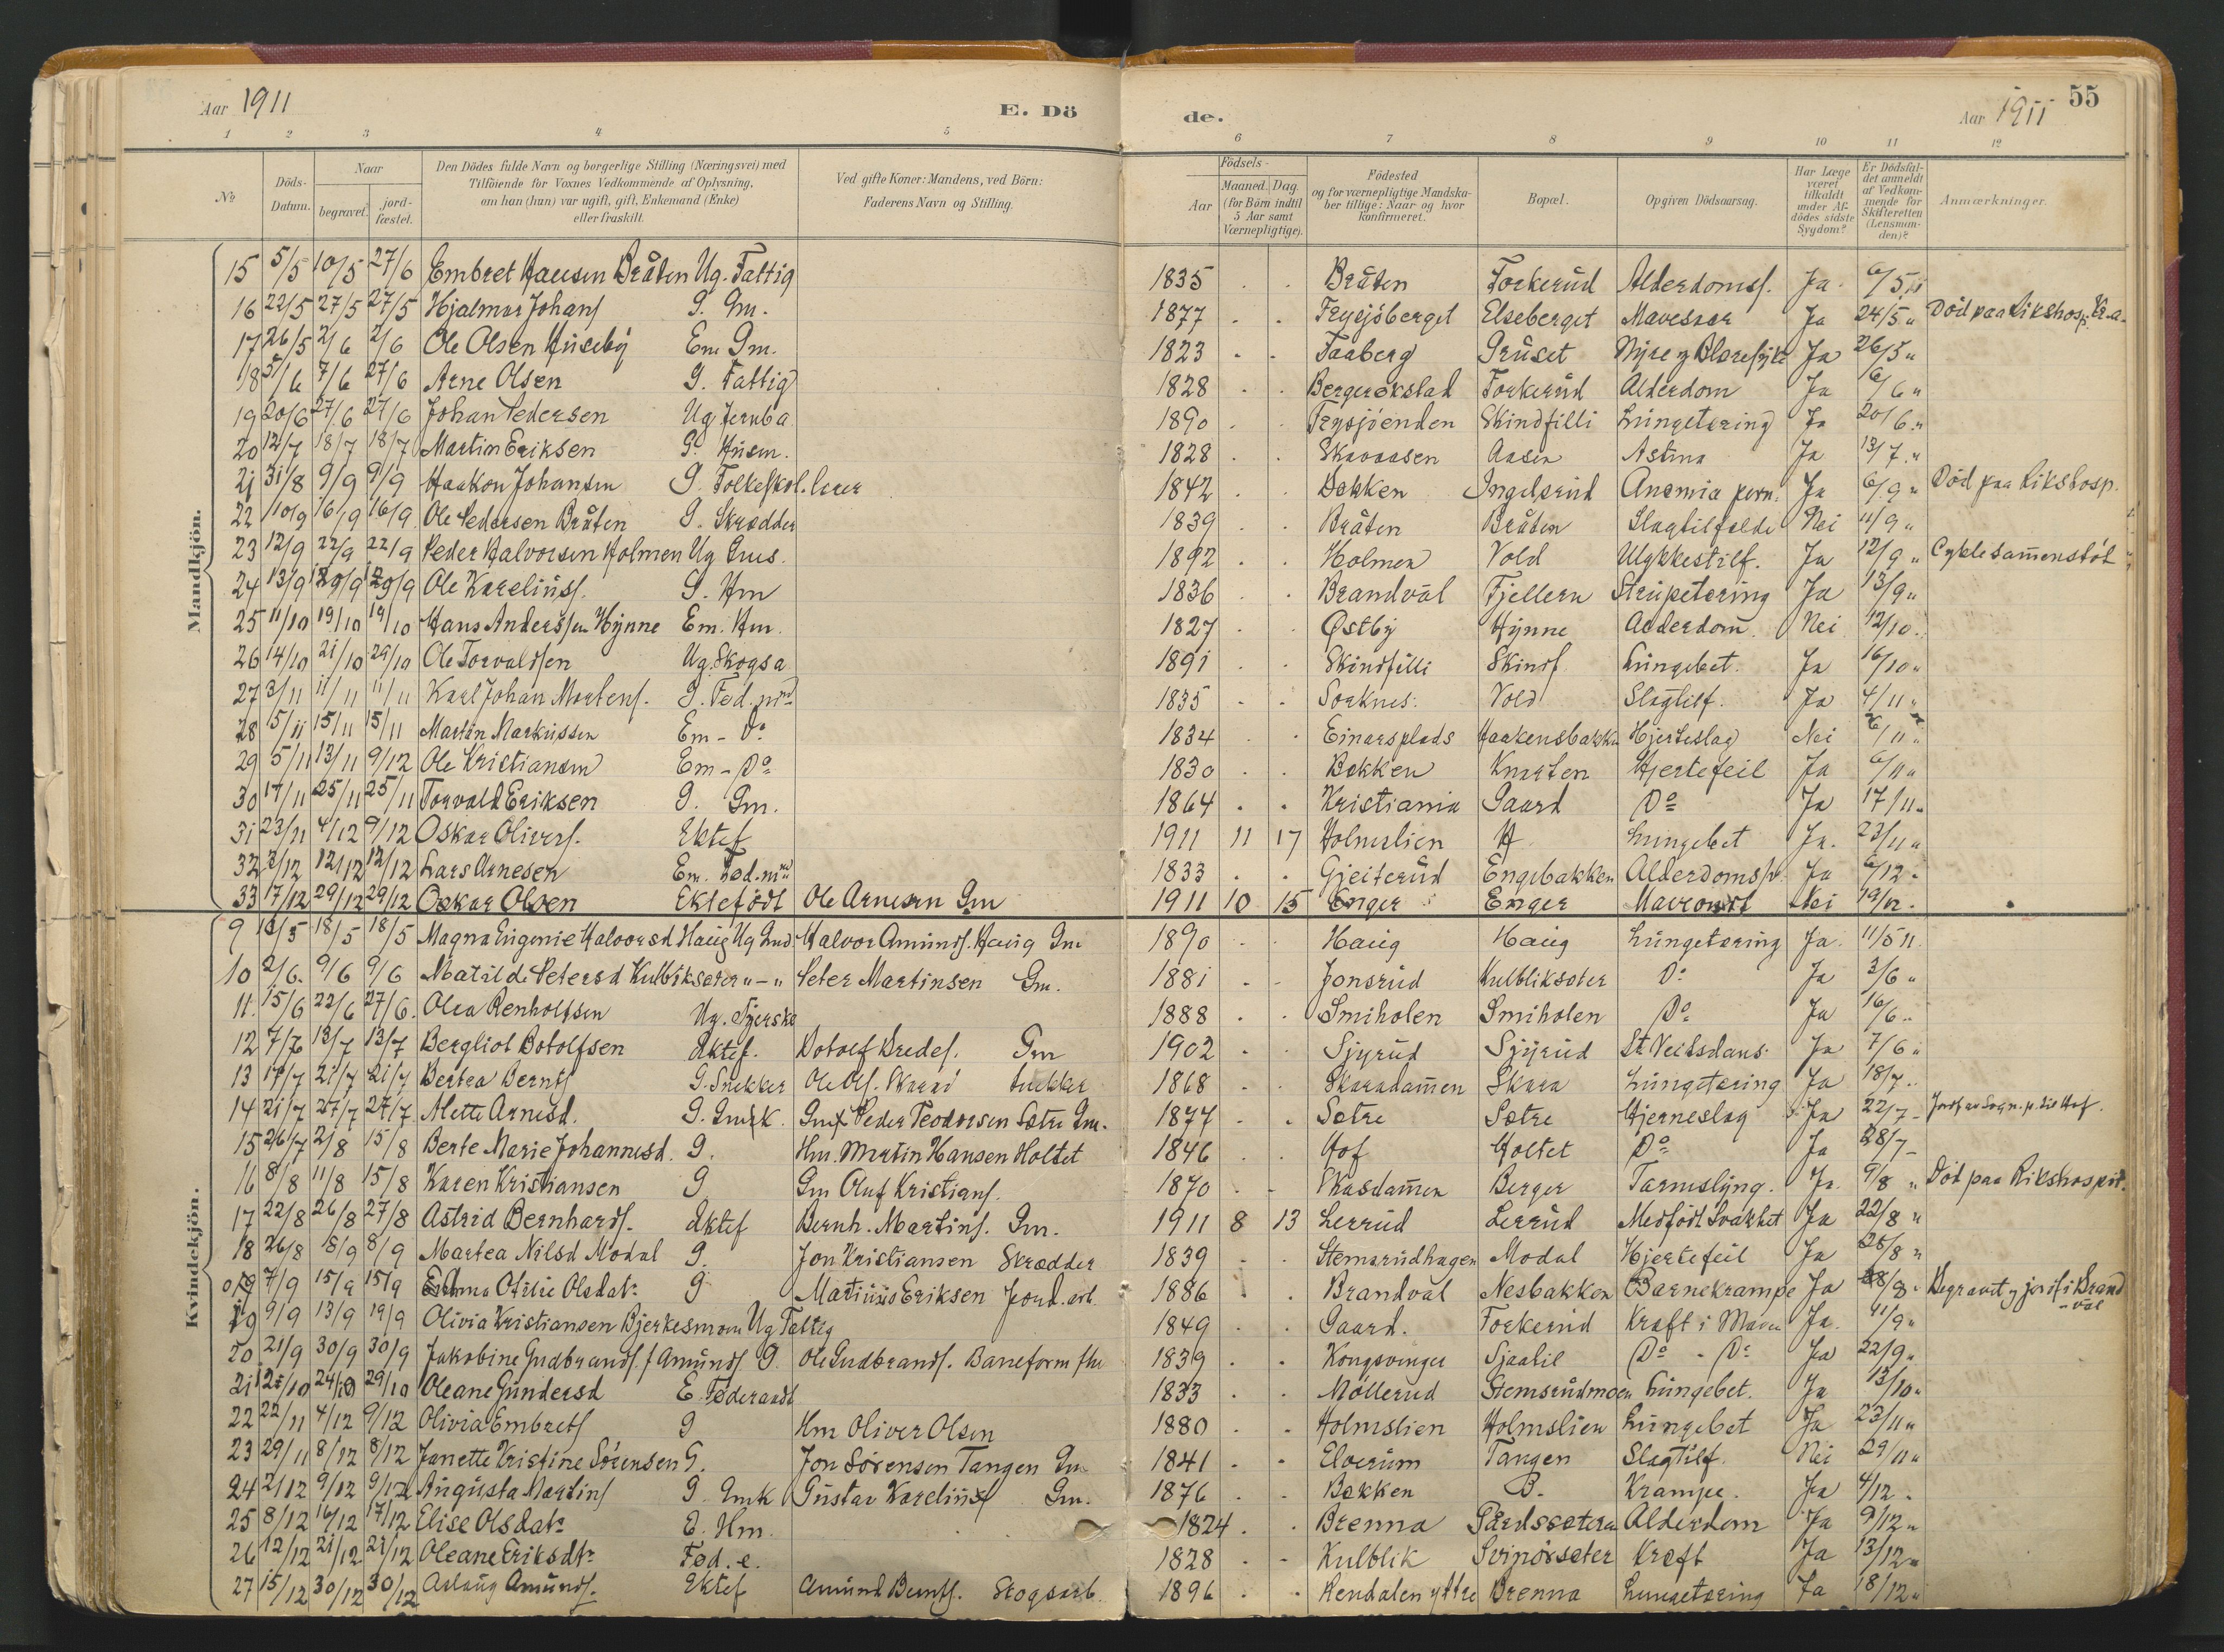 Aar 1911 E. Dö de. Aar 1911 55
1 2 3 4 5 6 7 8 9 10 11 12
№ Döds-Datum. Naar begravet. jord-fæstet. Den Dödes fulde Navn og borgerlige Stilling (Næringsvei) med Tilföiende for Voxnes Vedkommende af Oplysning, om han (hun) var ugift, gift, Enkemand (Enke) eller fraskilt. Ved gifte Koner: Mandens, ved Börn: Faderens Navn og Stilling. Födsels- Aar Maaned. Dag. (for Börn indtil 5 Aar samt Værnepligtige). Födested og for værnepligtige Mandskaber tillige: Naar og hvor konfirmeret. Bopæl. Opgiven Dödsaarsag. Har Læge været tilkaldt under Afdödes sidste Sygdom? Er Dödsfaldet anmeldt af Vedkommende for Skifteretten (Lensmanden)? Anmærkninger.
Mandkjön.
15 5/5 10/5 27/6 Embret Hansen Bråten Ug. Fattig 1835 Bråten Forkerud Alderdomss. Ja 6/5 11
16 22/5 27/5 27/5 Hjalmar Johans G. Gm. 1877 Frysjöberget Elseberget Mavesaar Ja 24/5 " Död paa Rikshosp. Kr.a.
17 26/5 2/6 2/6 Ole Olsen Huseby Em Gm. 1823 Faaberg Gruset Nyre og Blæresyke Ja 26/5 "
18 5/6 7/6 27/6 Arne Olsen G. Fattig 1828 Bergerokstad Forkerud Alderdom Ja 6/6 "
19 20/6 27/6 27/6 Johan Pedersen Ug Jernba 1890 Frysjöenden Skindfilli Lungetæring Ja 20/6 "
20 12/7 18/7 18/7 Martin Eriksen G. Husm. 1828 Skavaasen Aasen Astma Ja 13/7 "
21 31/8 9/9 9/9 Haakon Johansen G. Folkeskol. lærer 1842 Bakken Ingelsrud Anemia pern. Ja 6/9 " Död paa Rikshosp.
22 10/9 16/9 16/9 Ole Pedersen Bråten G. Skrædder 1839 Bråten Bråten Slagtilfælde Nei 11/9 "
23 12/9 22/9 22/9 Peder Halvorsen Holmen Ug Gms. 1892 Holmen Vold Ulykkestilf. Ja 12/9 " Cyklesamenstöt
24 13/9 29/9 29/9 Ole Kareliuss. G. Hm 1836 Brandval Fjellern Strupetæring Ja 13/9 "
25 11/10 19/10 19/10 Hans Anderssen Hynne Em. Hm. 1827 Østby Hynne Alderdom. Nei 12/10
26 14/10 21/10 29/10 Ole Torvaldsen Ug. Skogsa 1891 Skindfilli Skindf. Lungebet. Ja 16/10 "
27 3/11 11/11 11/11 Karl Johan Mortens. G. Föd.md 1835 Sorknes. Vold Slagtilf. Ja 4/11 "
28 5/11 15/11 15/11 Martin Markussen Em - Do 1834 Einarsplads Haakensbakken Hjerteslag Nei 6/11 "
29 5/11 13/11 9/12 Ole Kristiansen Em - Do 1830 Bakken Knarten Hjertefeil Ja 6/11 "
30 17/11 25/11 25/11 Torvald Eriksen G. Gm. 1864 Kristiania Gaard Do Ja 17/11 "
31 23/11 4/12 9/12 Oskar Olivers. Ektef 1911 11 17 Holmslien H Lungebet Ja. 23/11 "
32 3/12 12/12 12/12 Lars Arnesen Em. Föd.md 1833 Gjeiterud Engebakken Alderdomssv. Ja 6/12 "
33 17/12 29/12 29/12 Oskar Olsen Ektefödt Ole Arnesen Gm 1911 10 15 Enger Enger Maveondt Nei 19/12
Kvindekjön.
9 11/5 18/5 18/5 Magna Eugenie Halvorsd Haug Ug Gmd Halvor Amunds. Haug Gm 1890 Haug Haug Lungetæring Ja. 11/5 11
10 2/6 9/6 9/6 Matilde Petersd Kulbliksæter "-" Peter Martinsen Gm. 1881 Jonsrud Kulbliksæter Do Ja 3/6 "
11 15/6 22/6 27/6 Olea Renholtsen Ug. Syerske 1888 Smiholen Smiholen Do Ja 16/6
12 7/7 13/7 13/7 Bergliot Botolfsen Ektef. Botolf Bredes. Gm 1902 Sjyrud Sjyrud St Veitsdans. Ja 7/6 "
13 17/7 21/7 21/7 Bertea Bernts G. Snekker Ole Ols. Skara Snekker 1868 Skaradammen Skara Lungetæring Ja 18/7
14 21/7 27/7 27/7 Mette Arnesd. G. Gmsk. Gm Peder Teodorsen Sætre Gm. 1877 Sætre Sætre Hjerneslag Ja 22/7
15 26/7 2/8 15/8 Berte Marie Johannesd. G. Hm. Martin Hansen Holtet 1846 Hof Holtet Do Ja 28/7
16 8/8 11/8 15/8 Karen Kristiansen G Gm Oluf Kristians. 1870 Skasdammen Berger Tarmslyng. Ja 9/8 " Död paa Rikshospit.
17 22/8 26/8 27/8 Astrid Bernhards. Ektef Bernh. Martins. Gm. 1911 8 13 Lerrud Lerrud Medfödt Svakhet Ja 22/8 "
18 26/8 8/9 8/9 Martea Nilsd Modal G. Jon Kristiansen Skrædder 1839 Stemsrudhagen Modal Hjertefeil Ja 26/8 "
7/9 15/9 15/9 Emma Otilie Olsdatr G Martinius Eriksen Jord.arb. 1886 Brandval Nesbakken Barnekrampe Ja 28/8 Begravet og jordf. i Brandval
19 9/9 13/9 19/9 Olivia Kristiansen Bjerkesmoen Ug Fattig 1849 Gaard. Forkerud Kræft i Maven Ja. 11/9 "
20 21/9 30/9 30/9 Jakobine Gudbrands. f Amunds G. Ole Gudbrands. Baneform. 1839 Kongsvinger Sjaatil Do - Do Ja 22/9 "
21 12/10 24/10 29/10 Oleane Gundersd E. Föderaad 1833 Möllerud Stemsrudmoen Lungebet. Ja 13/10 "
22 22/11 4/12 9/12 Olivia Embrets G Hm Oliver Olsen 1880 Holmslien Holmslien Lungebet Ja 23/11 "
23 29/11 8/12 8/12 Janette Kristine Sörensen G. Jon Sörensen Tangen Gm 1841 Elverum Tangen Slagtilf. Nei 29/11 "
24 2/12 9/12 9/12 Augusta Martins G. Gmk Gustav Karelius Gm. 1876 Bakken B. Krampe. Ja 4/12
25 8/12 16/12 17/12 Elise Olsdatr E. Hm. 1824 Brenna Pærdssæteren Alderdom Ja 9/12 "
26 12/12 21/12 21/12 Oleane Eriksdtr Föd.e. 1828 Kulblik Svipörsæter Kræft Ja 13/12 "
27 15/12 30/12 30/12 Aslaug Amunds. Ektef Amund Bernts. Skogsarb. 1896 Rendalen yttre Brenna Lungetæring Ja 18/12 "